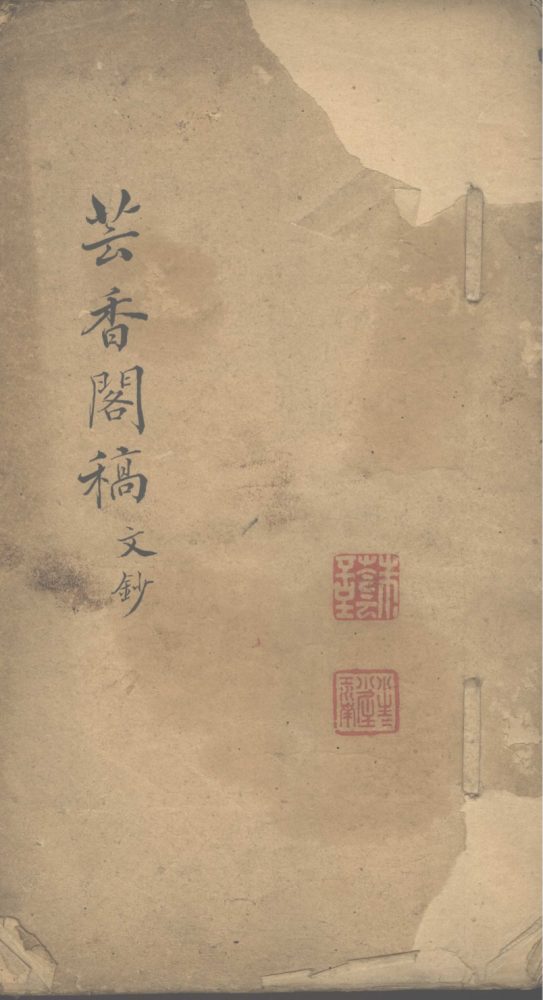 芸香閣稿
文鈔